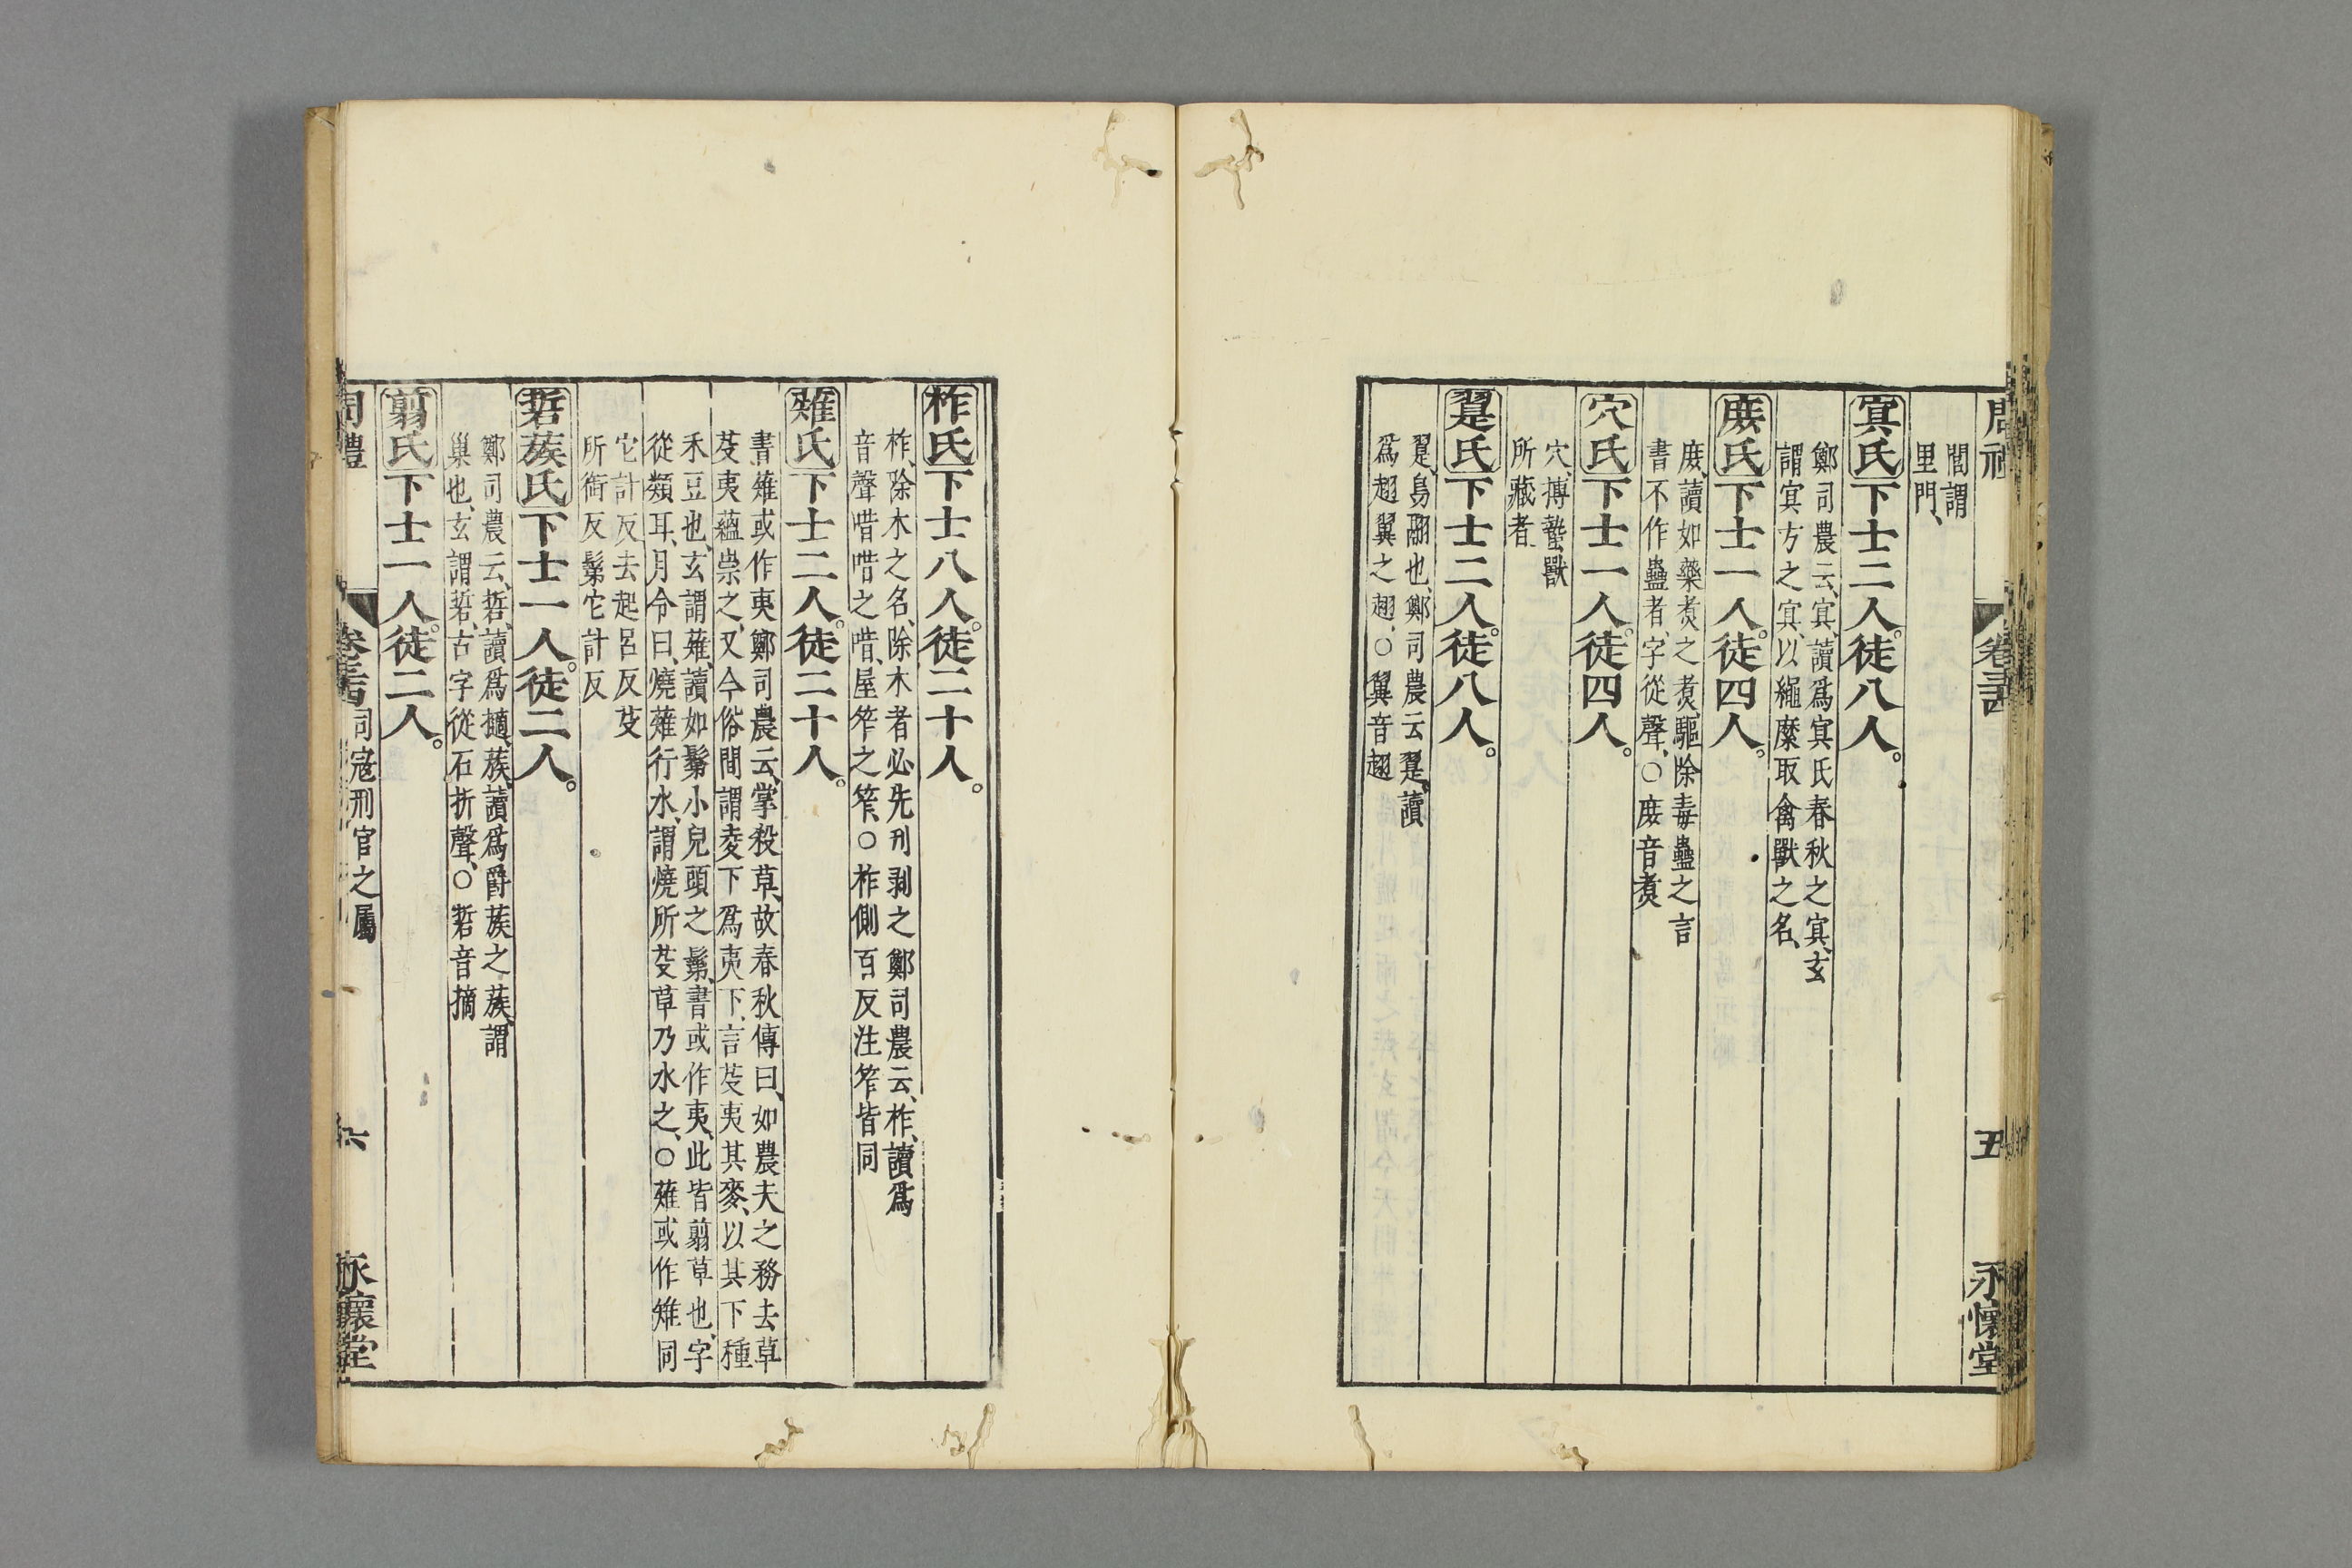 閭謂
里門、
冥氏下士二人。徒八人。
鄭司農云、冥、讀爲冥氏春秋之冥、玄
謂冥方之冥、以繩縻取禽獸之名、
庶氏下士一人。徒四人。
庶、讀如藥煑之煑、驅除毒蠱之言
書不作蠱者、字從聲、○庶音煑
穴氏下士一人。徒四人。
穴、摶蟄獸
所藏者
翨氏下士二人。徒八人。
翨、鳥翮也、鄭司農云翨、讀
爲翅翼之翅、○翼音翅
柞氏下士八人。徒二十人。
柞、除木之名、除木者必先刋剥之鄭司農云、柞、讀爲
音聲唶唶之唶、屋笮之笮、○柞側百反注笮皆同
薙氏下士二人。徒二十人。
書薙或作夷鄭司農云、掌殺草、故春秋傳曰、如農夫之務去草
芟夷蘊崇之、又今俗間謂麥下爲夷下、言芟夷其麥、以其下種
禾豆也、玄謂薙、讀如鬀小兒頭之鬀、書或作夷、此皆翦草也、字
從類耳、月令曰、燒薙行水、謂燒所芟草乃水之、○薙或作雉同
它計反去起呂反芟
所銜反鬀它計反
硩蔟氏下士一人。徒二人。
鄭司農云、硩、讀爲擿、蔟、讀爲爵蔟之蔟、謂
巢也、玄謂硩、古字從石折聲、○硩音摘
翦氏下士一人。徒二人。
司寇刑官之屬
六
永懷堂
五
永懷堂